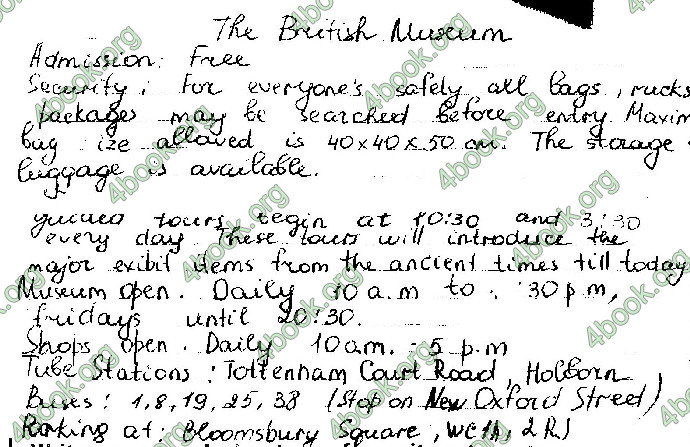 The British Museum
Admission: Free
Security: For everyone's safely all bags, rucks
packages may be searched before entry. Maxim
bag ize allowed is 40x40x50 cm. The storage
luggage is available.
tours begin at 10:30 and 3:30
every day. These tours will introduce the
major exibit items from the ancient times till today
Museum open. Daily 10 a.m to . 30 p m,
fridays until 20:30.
Shops open. Daily 10 a.m. - 5 p.m
Tube Stations: Tottenham Court Road, Holborn
Buses: 1, 8, 19, 25, 38 (Stop on New Oxford Street)
Parking at: Bloomsbury Square, WC1A, 2RJ